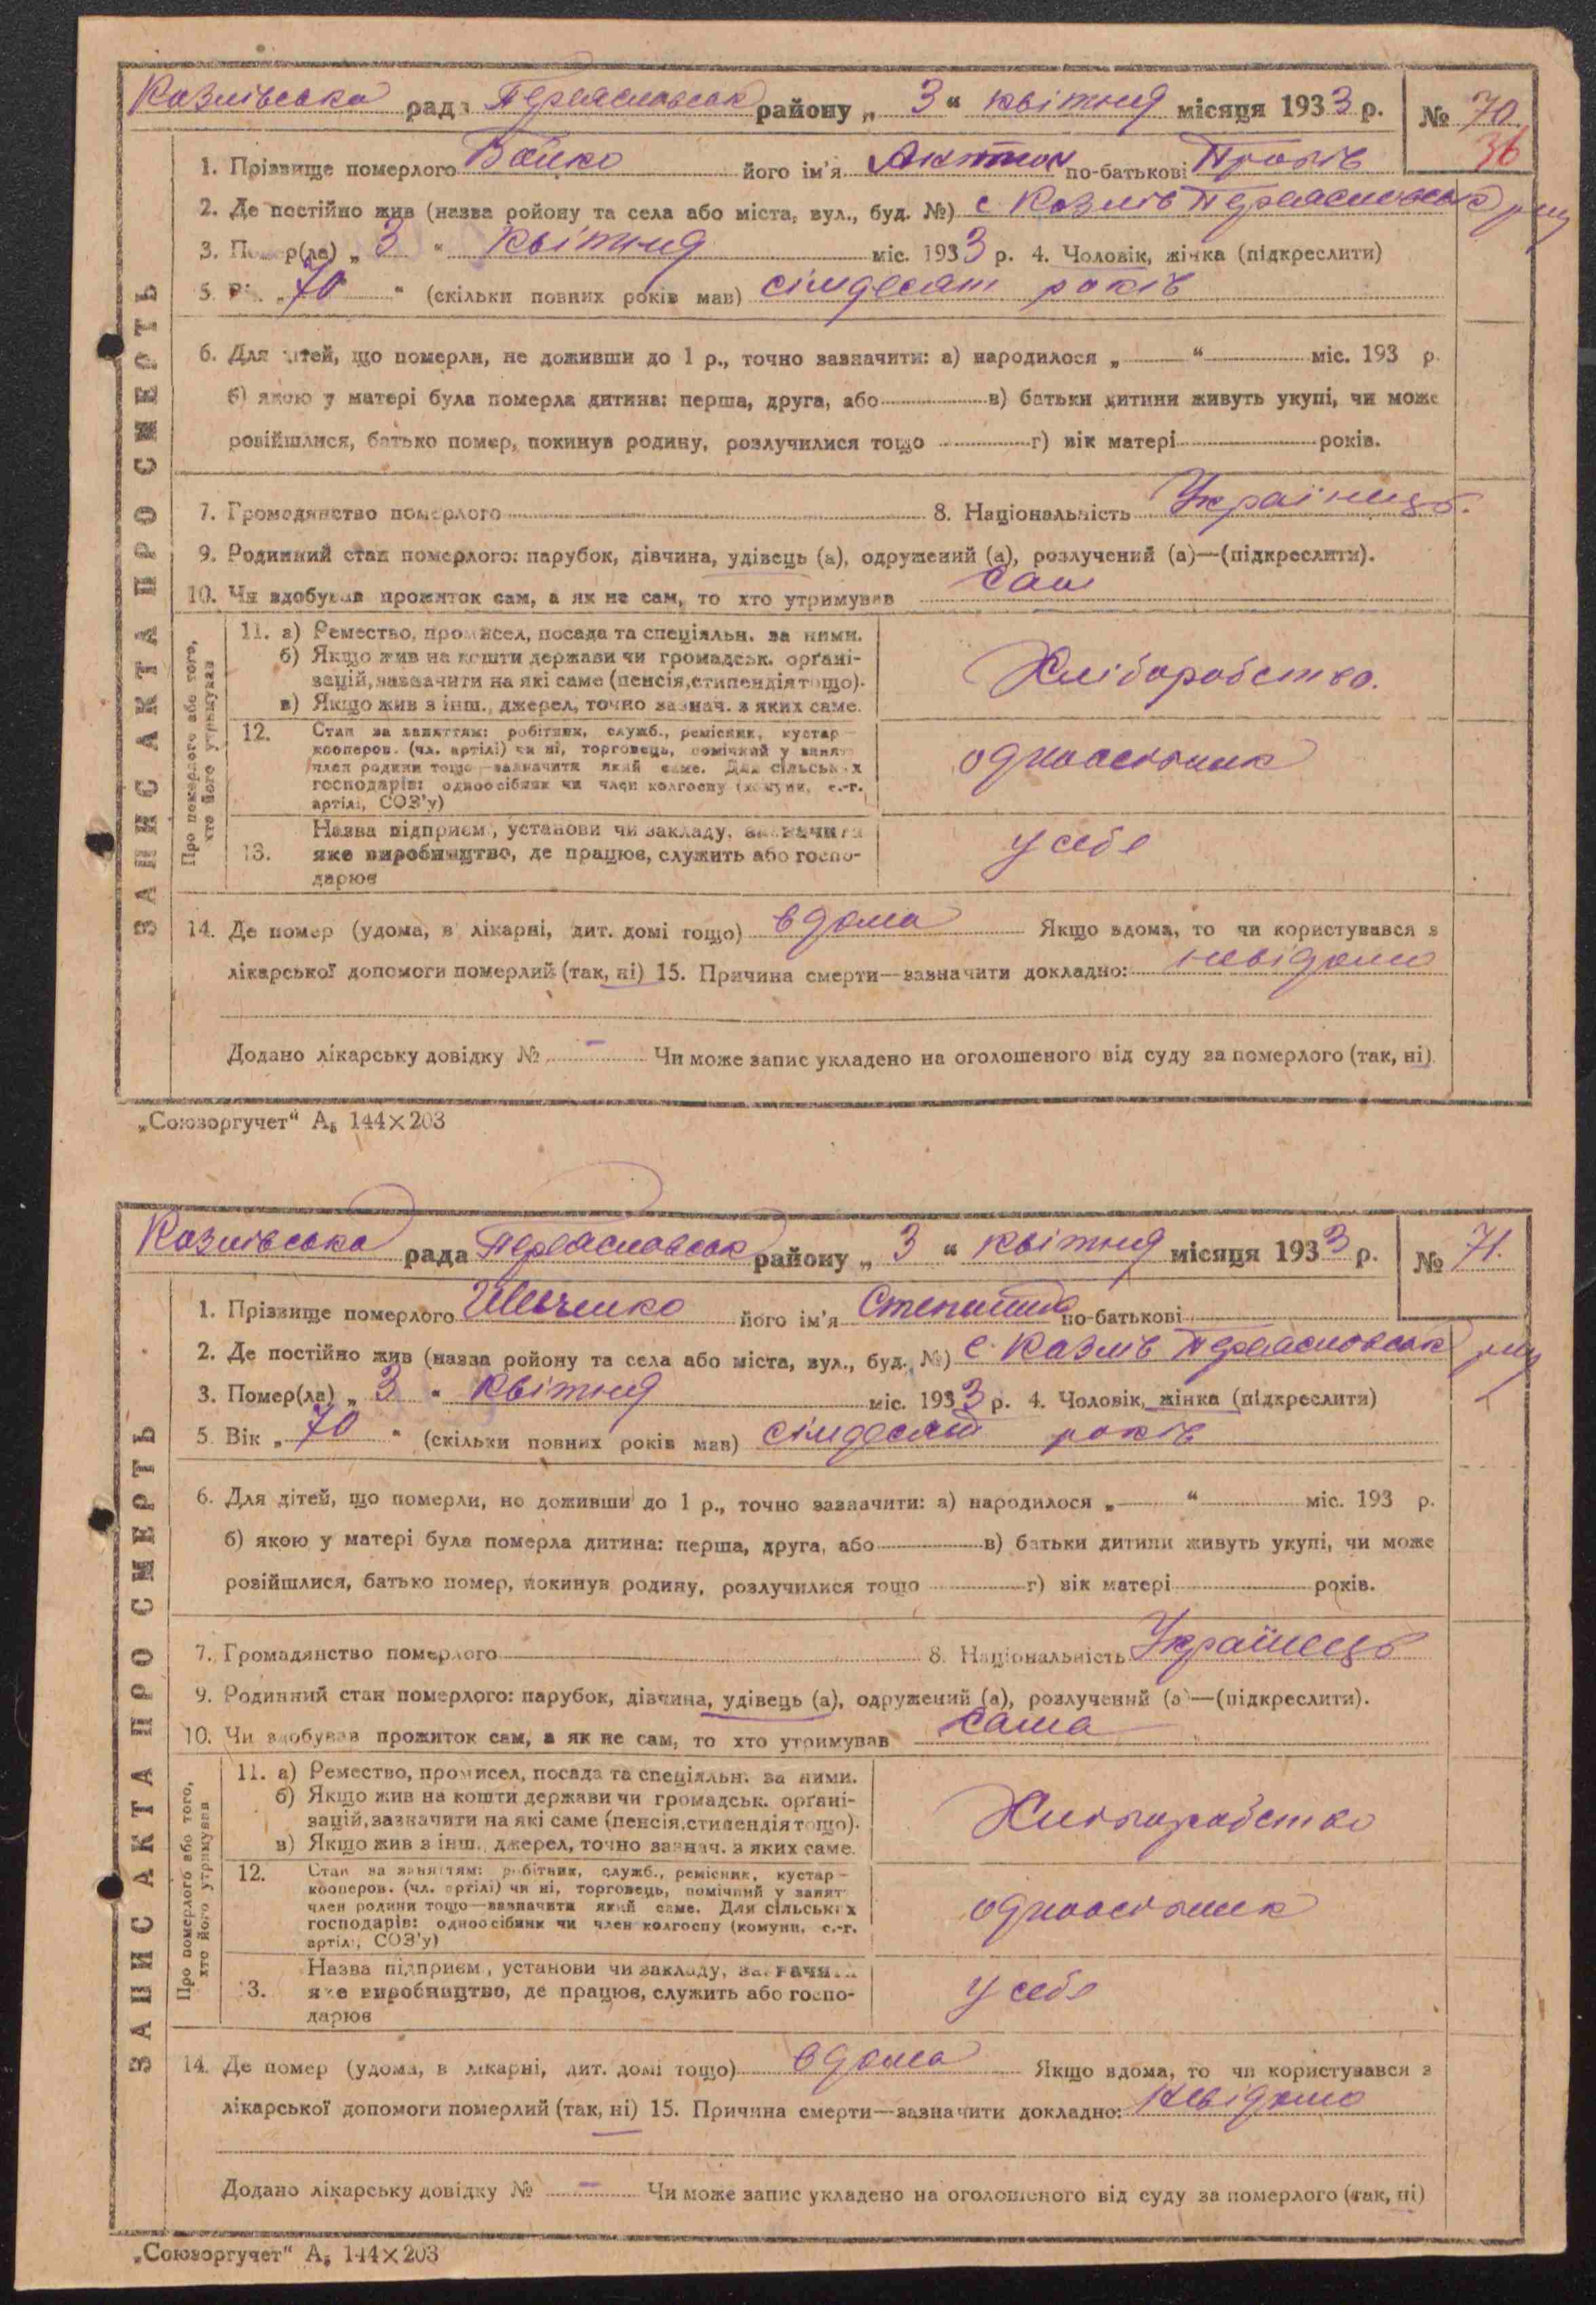 Козлівська рада Переяславськ району „ 3 “ квітня місяця 1933 р. № 70.
36
1. Прізвище померлого Бойко його ім'я Антон по-батькові
2. Де постійно жив (назва ройону та села або міста, вул., буд. №) с. Козлів Переяславськ рну
3. Помер(ла) „ 3 “ Квітня міс. 1933 р. 4. Чоловік, жінка (підкреслити)
5. Вік „ 70 “ (скільки повних років мав) сімдесят років
6. Для дітей, що померли, не доживши до 1 р., точно зазначити: а) народилося „ “ міс. 193 р.
б) якою у матері була померла дитина: перша, друга, або в) батьки дитини живуть укупі, чи може
розійшлися, батько помер, покинув родину, розлучилися тощо г) вік матері років.
7. Громадянство померлого 8. Національність Українець.
9. Родинний стан померлого: парубок, дівчина, удівець (а), одружений (а), розлучений (а)—(підкреслити).
10. Чи здобував прожиток сам, а як не сам, то хто утримував Сам
ЗАПИС АКТА ПРО СМЕРТЬ
Про померлого або того,
хто його утримував
11. а) Ремество, промисел, посада та спеціяльн. за ними.
б) Якщо жив на кошти держави чи громадськ. орґані-
зацій, зазначити на які саме (пенсія, стипендія тощо).
в) Якщо жив з інш., джерел, точно зазнач. з яких саме.
Хліборобство.
12. Стан за заняттям: робітник, служб., ремісник, кустар—
кооперов. (чл. артілі) чи ні, торговець, помічний у занят.
член родини тощо—зазначити який саме. Для сільських
господарів: одноосібник чи член колгоспу (комуни, с.-г.
артілі, СОЗ'у)
одноосібник
13. Назва підприєм., установи чи закладу, зазначити
яке виробництво, де працює, служить або госпо-
дарює
у себе
14. Де помер (удома, в лікарні, дит. домі тощо) вдома Якщо вдома, то чи користувався з
лікарської допомоги померлий (так, ні) 15. Причина смерти—зазначити докладно: невідомо
Додано лікарську довідку № - Чи може запис укладено на оголошеного від суду за померлого (так, ні)
„Союзоргучет“ А₅ 144×203
Козлівська рада Переяславськ району „ 3 “ квітня місяця 1933 р. № 71.
1. Прізвище померлого Шевченко його ім'я Степанида по-батькові
2. Де постійно жив (назва ройону та села або міста, вул., буд. №) с. Козлів Переяславськ рну
3. Помер(ла) „ 3 “ Квітня міс. 1933 р. 4. Чоловік, жінка (підкреслити)
5. Вік „ 70 “ (скільки повних років мав) сімдесят років
6. Для дітей, що померли, не доживши до 1 р., точно зазначити: а) народилося „ “ міс. 193 р.
б) якою у матері була померла дитина: перша, друга, або в) батьки дитини живуть укупі, чи може
розійшлися, батько помер, покинув родину, розлучилися тощо г) вік матері років.
7. Громадянство померлого 8. Національність Українець
9. Родинний стан померлого: парубок, дівчина, удівець (а), одружений (а), розлучений (а)—(підкреслити).
10. Чи здобував прожиток сам, а як не сам, то хто утримував Сама
ЗАПИС АКТА ПРО СМЕРТЬ
Про померлого або того,
хто його утримував
11. а) Ремество, промисел, посада та спеціяльн. за ними.
б) Якщо жив на кошти держави чи громадськ. орґані-
зацій, зазначити на які саме (пенсія, стипендія тощо).
в) Якщо жив з інш., джерел, точно зазнач. з яких саме.
Хліборобство
12. Стан за заняттям: робітник, служб., ремісник, кустар—
кооперов. (чл. артілі) чи ні, торговець, помічний у занят.
член родини тощо—зазначити який саме. Для сільських
господарів: одноосібник чи член колгоспу (комуни, с.-г.
артілі, СОЗ'у)
одноосібник
13. Назва підприєм., установи чи закладу, зазначити
яке виробництво, де працює, служить або госпо-
дарює
у себе
14. Де помер (удома, в лікарні, дит. домі тощо) вдома Якщо вдома, то чи користувався з
лікарської допомоги померлий (так, ні) 15. Причина смерти—зазначити докладно: Невідомо
Додано лікарську довідку № - Чи може запис укладено на оголошеного від суду за померлого (так, ні)
„Союзоргучет“ А₅ 144×203